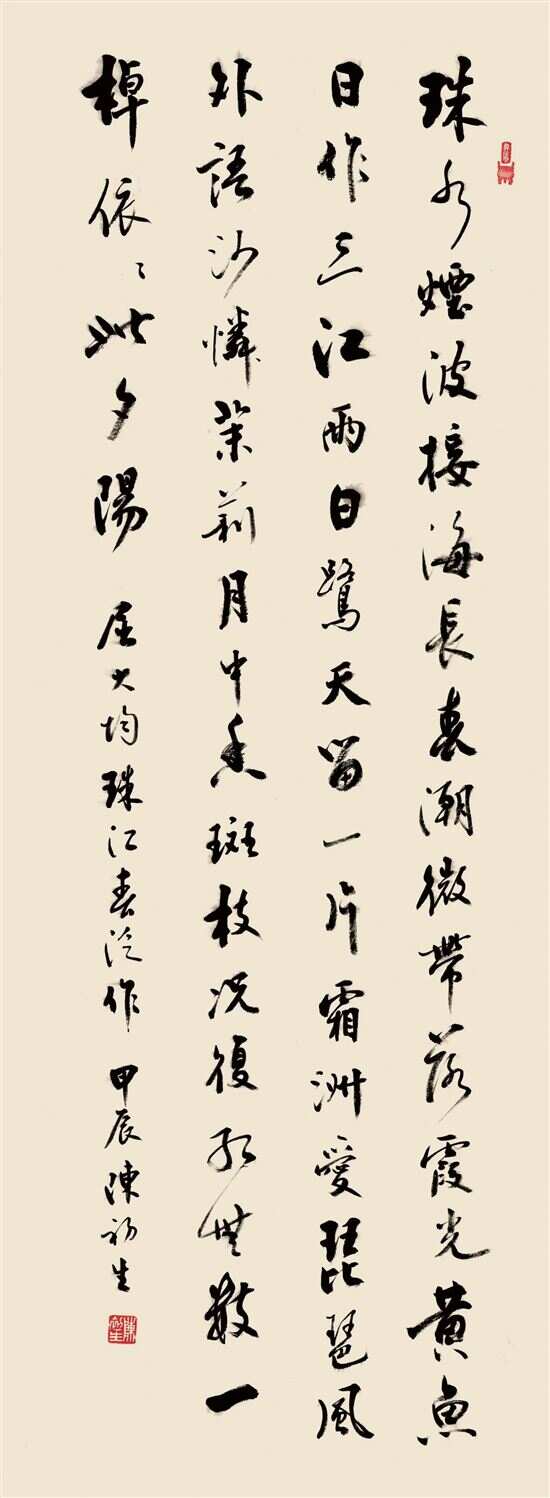 珠水煙波接海長春潮微帶落霞光黃魚
日作三江雨白鷺天留一片霜洲愛琵琶風
外語沙憐茉莉月中香斑枝況復紅無數一
棹依〻此夕陽 屈大均珠江春泛作 甲辰陳初生